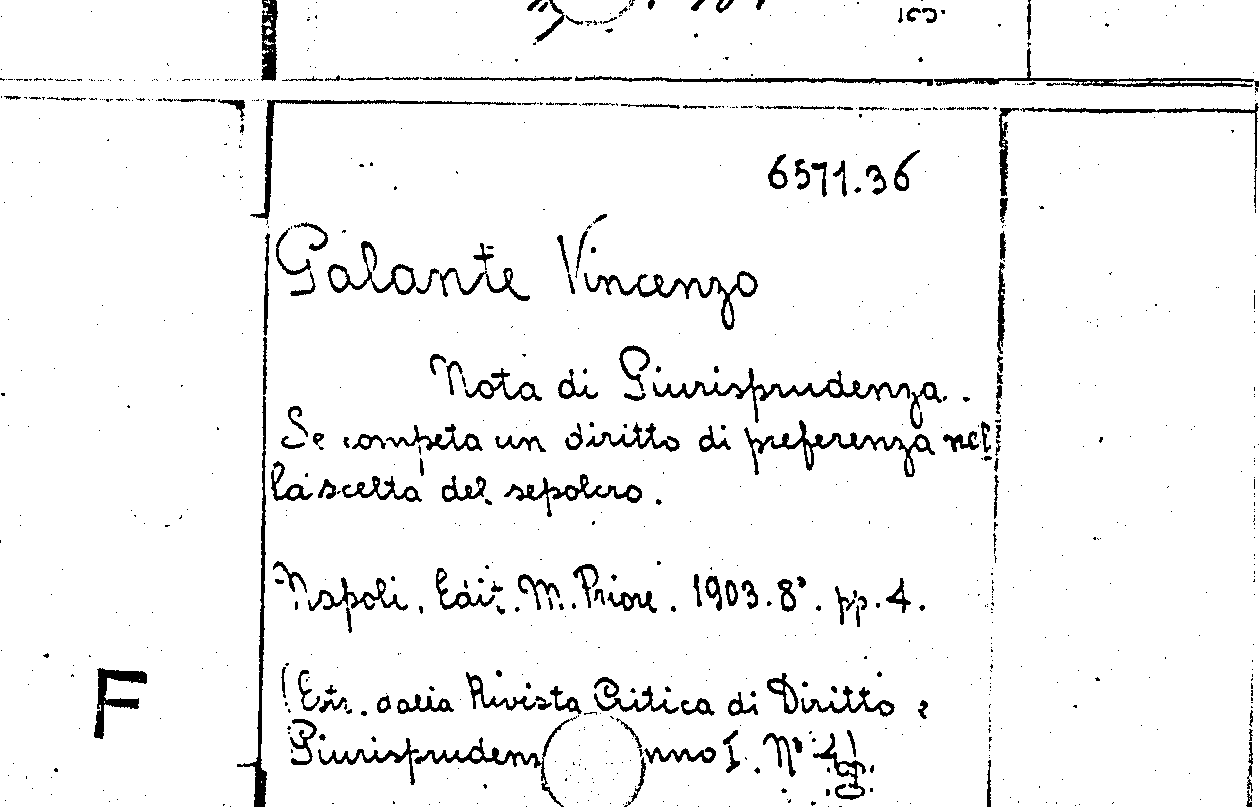 6571.36
Galante Vincenzo
Nota di Giurisprudenza.
Se competa un diritto di preferenza nel
la scelta del sepolcro.
Napoli. Edit. M. Priore. 1903. 8°. pp. 4.
F
(Estr. dalla Rivista Critica di Diritto e
Giurisprudenz nno I. N° 4)